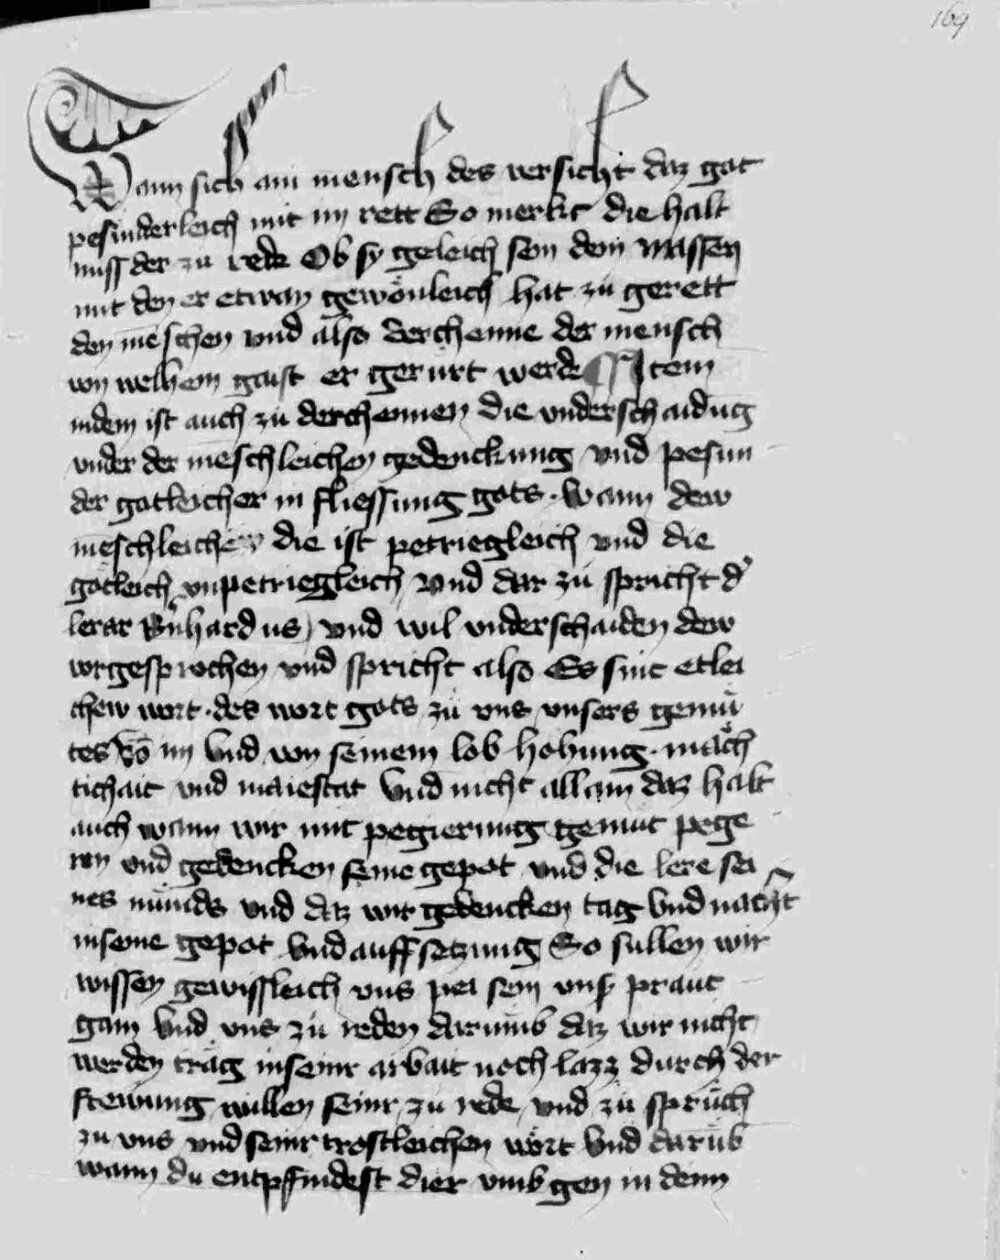 169
Wann sich ain mensch des versicht daz got
pesinderleich mit im rett So merkt die halt
nuss der zu rede Ob sy geleich sein den massen
mit den er etwan gewönleich hat zu gerett
den mēschen vnd also derchenne der mensch
von welhem gaist er gerürt werde ¶ Item
indem ist auch zu derchennen die vnderschaidūg
vnder der mēschleichen gedenckung vnd pesun
der gotleicher in fliessung gots · Wann dew
mēschleichew die ist petriegleich vnd die
götleich vnpetriegleich vnd dar zu spricht d'
lerar Bn̄hardus vnd wil vnderschaiden dew
vorgesprochen vnd spricht also Es sint etlei
chew wort · des wort gots zu vns vnsers gemü
tes vō im vnd von seinem lob hohung · mäch
tichait vnd maiestat vnd nicht allain daz halt
auch wann wir mit pegierung gemüt pege
ren vnd gedencken seine gepot vnd die lere sei
nes münds vnd daz wir gedencken tag vnd nacht
in seine gepot vnd auffsetzung So sullen wir
wissen gewissleich vns pei sein vns' praut
gam vnd vns zu reden darumb daz wir nicht
werden träg in seinr arbait noch lazz durch der
frewung willen seinr zu rede vnd zu sprüch
zu vns vnd seinr trostleichen wört vnd darūb
wann du entpfindest dier vmb gen in denn